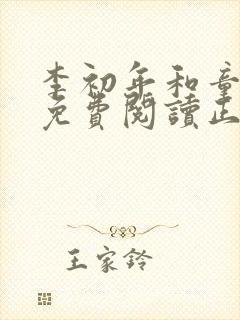 李初年和童
免費閱讀正
王家鈴